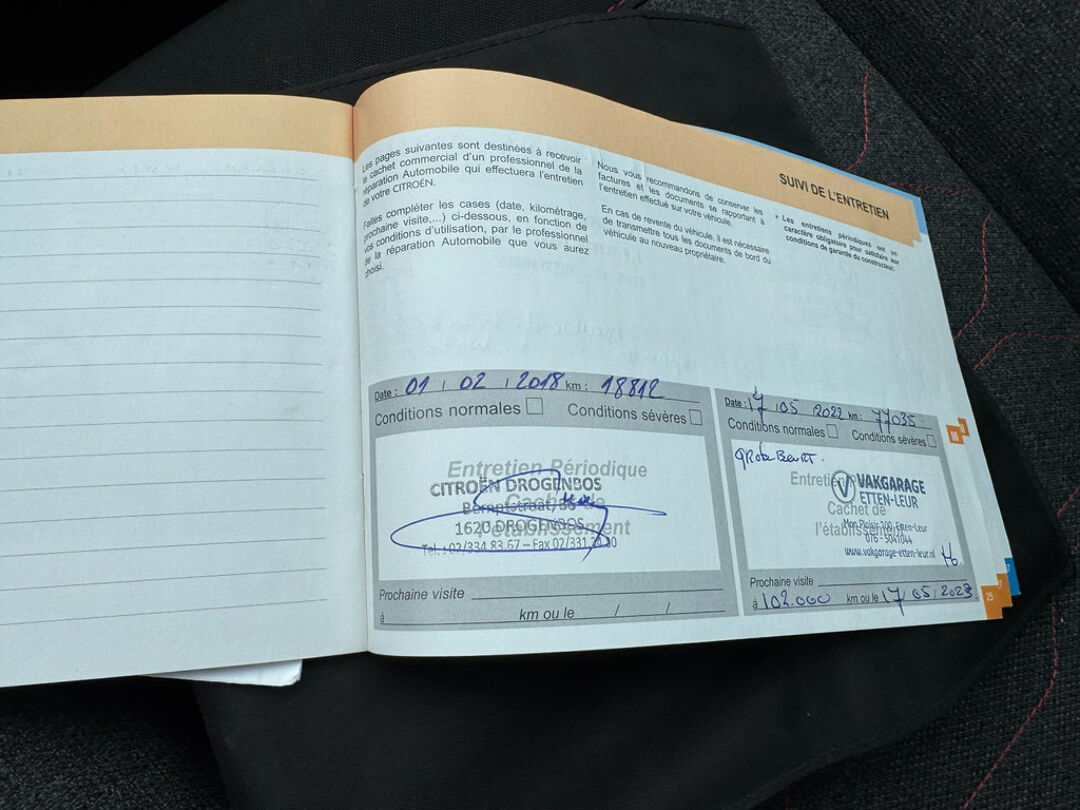 SUIVI DE L'ENTRETIEN
Les pages suivantes sont destinées à recevoir
le cachet commercial d'un professionnel de la
réparation Automobile qui effectuera l'entretien
de votre CITROËN.
Faites compléter les cases (date, kilométrage,
prochaine visite,...) ci-dessous, en fonction de
vos conditions d'utilisation, par le professionnel
de la réparation Automobile que vous aurez
choisi.
Nous vous recommandons de conserver les
factures et les documents se rapportant à
l'entretien effectué sur votre véhicule.
En cas de revente du véhicule, il est nécessaire
de transmettre tous les documents de bord du
véhicule au nouveau propriétaire.
* Les entretiens périodiques ont un
caractère obligatoire pour satisfaire aux
conditions de garantie du constructeur.
Date : 01 / 02 / 2018 km : 18812
Conditions normales Conditions sévères
Entretien Périodique
CITROËN DROGENBOS
Cachet de
1620 DROGENBOS
l'établissement
Tel. : 02/334.83.67 – Fax 02/331
Prochaine visite
à km ou le / /
Date : 17 05 2022 km : 77035.
Conditions normales Conditions sévères
Entretien
VAKGARAGE
ETTEN-LEUR
Cachet de
l'établissement
Mon Plaisir 100, Etten-Leur
076 - 5041044
www.vakgarage-etten-leur.nl
Prochaine visite
à 102.000 km ou le 17 05 2023.
25